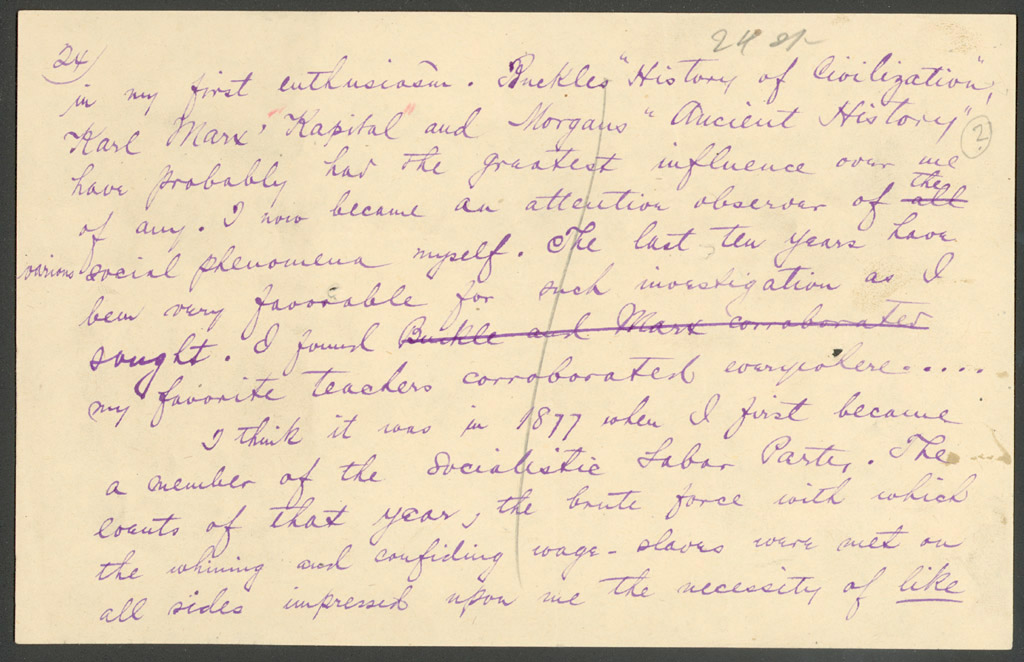 24
24
in my first enthusiasm. Buckles "History of Civilization",
Karl Marx' "Kapital" and Morgans "Ancient History"
2
have probably had the greatest influence over me
of any. I now became an attentive observer of the all
various social phenomena myself. The last ten years have
been very favorable for such investigation as I
sought. I found Buckle and Marx corroborated
my favorite teachers corroborated everywhere.....
I think it was in 1877 when I first became
a member of the Socialistic Labor Party. The
events of that year, the brute force with which
the whining and confiding wage-slaves were met on
all sides impressed upon me the necessity of like